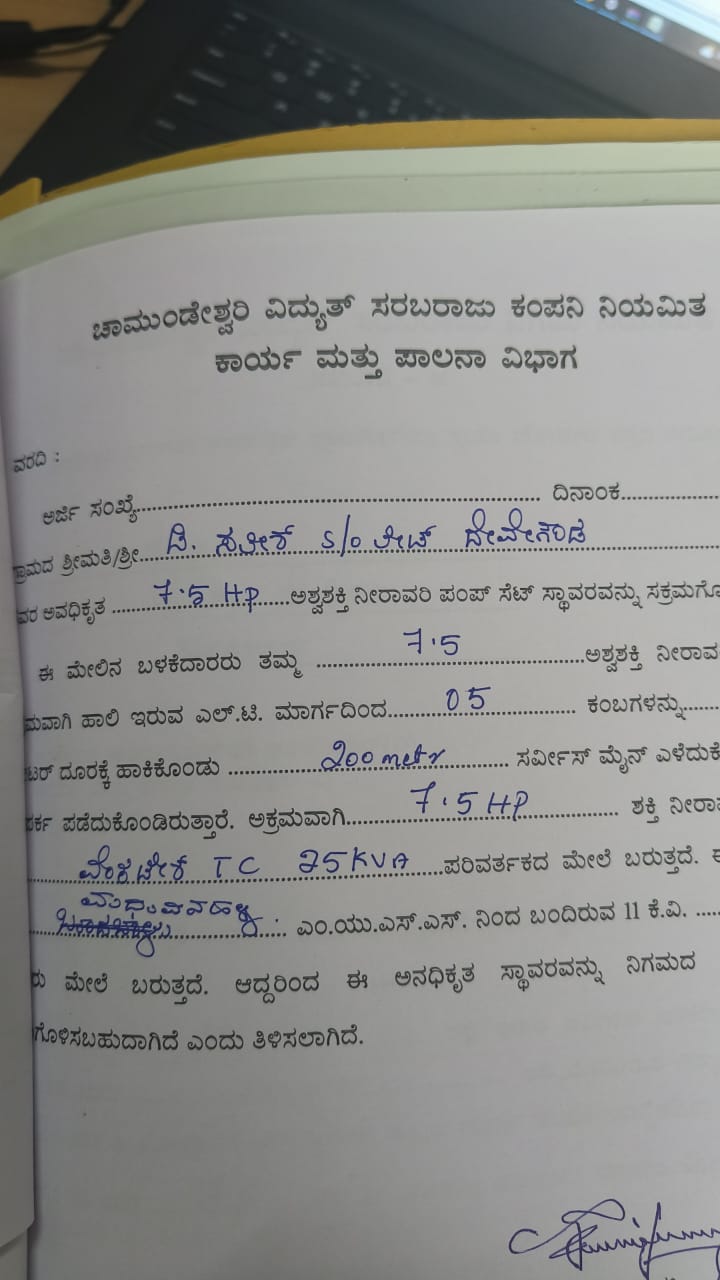 ಚಾಮುಂಡೇಶ್ವರಿ ವಿದ್ಯುತ್ ಸರಬರಾಜು ಕಂಪನಿ ನಿಯಮಿತ
ಕಾರ್ಯ ಮತ್ತು ಪಾಲನಾ ವಿಭಾಗ
ವರದಿ :
ಅರ್ಜಿ ಸಂಖ್ಯೆ.................... ದಿನಾಂಕ..........
ಗ್ರಾಮದ ಶ್ರೀಮತಿ/ಶ್ರೀ.... ಡಿ. ಸತೀಶ್ S/o ಲೇಟ್ ದೇವೇಗೌಡ
ವರ ಅವಧಿಕೃತ .... 7.5 HP ....ಅಶ್ವಶಕ್ತಿ ನೀರಾವರಿ ಪಂಪ್ ಸೆಟ್ ಸ್ಥಾವರವನ್ನು ಸಕ್ರಮಗೊ
ಈ ಮೇಲಿನ ಬಳಕೆದಾರರು ತಮ್ಮ .... 7.5 ....ಅಶ್ವಶಕ್ತಿ ನೀರಾವ
ಮವಾಗಿ ಹಾಲಿ ಇರುವ ಎಲ್.ಟಿ. ಮಾರ್ಗದಿಂದ.... 05 .... ಕಂಬಗಳನ್ನು....
ಟರ್ ದೂರಕ್ಕೆ ಹಾಕಿಕೊಂಡು .... 200 metr .... ಸರ್ವೀಸ್ ಮೈನ್ ಎಳೆದುಕೆ
ಪರ್ಕ ಪಡೆದುಕೊಂಡಿರುತ್ತಾರೆ. ಅಕ್ರಮವಾಗಿ.... 7.5 HP .... ಶಕ್ತಿ ನೀರಾವ
.... ವೆಂಕಟೇಶ TC 25 KVA ....ಪರಿವರ್ತಕದ ಮೇಲೆ ಬರುತ್ತದೆ. ಈ
.... ಎಂ.ಯು.ಎಸ್.ಎಸ್. ನಿಂದ ಬಂದಿರುವ 11 ಕೆ.ವಿ. ....
ರು ಮೇಲೆ ಬರುತ್ತದೆ. ಆದ್ದರಿಂದ ಈ ಅನಧಿಕೃತ ಸ್ಥಾವರವನ್ನು ನಿಗಮದ
ಗೊಳಿಸಬಹುದಾಗಿದೆ ಎಂದು ತಿಳಿಸಲಾಗಿದೆ.